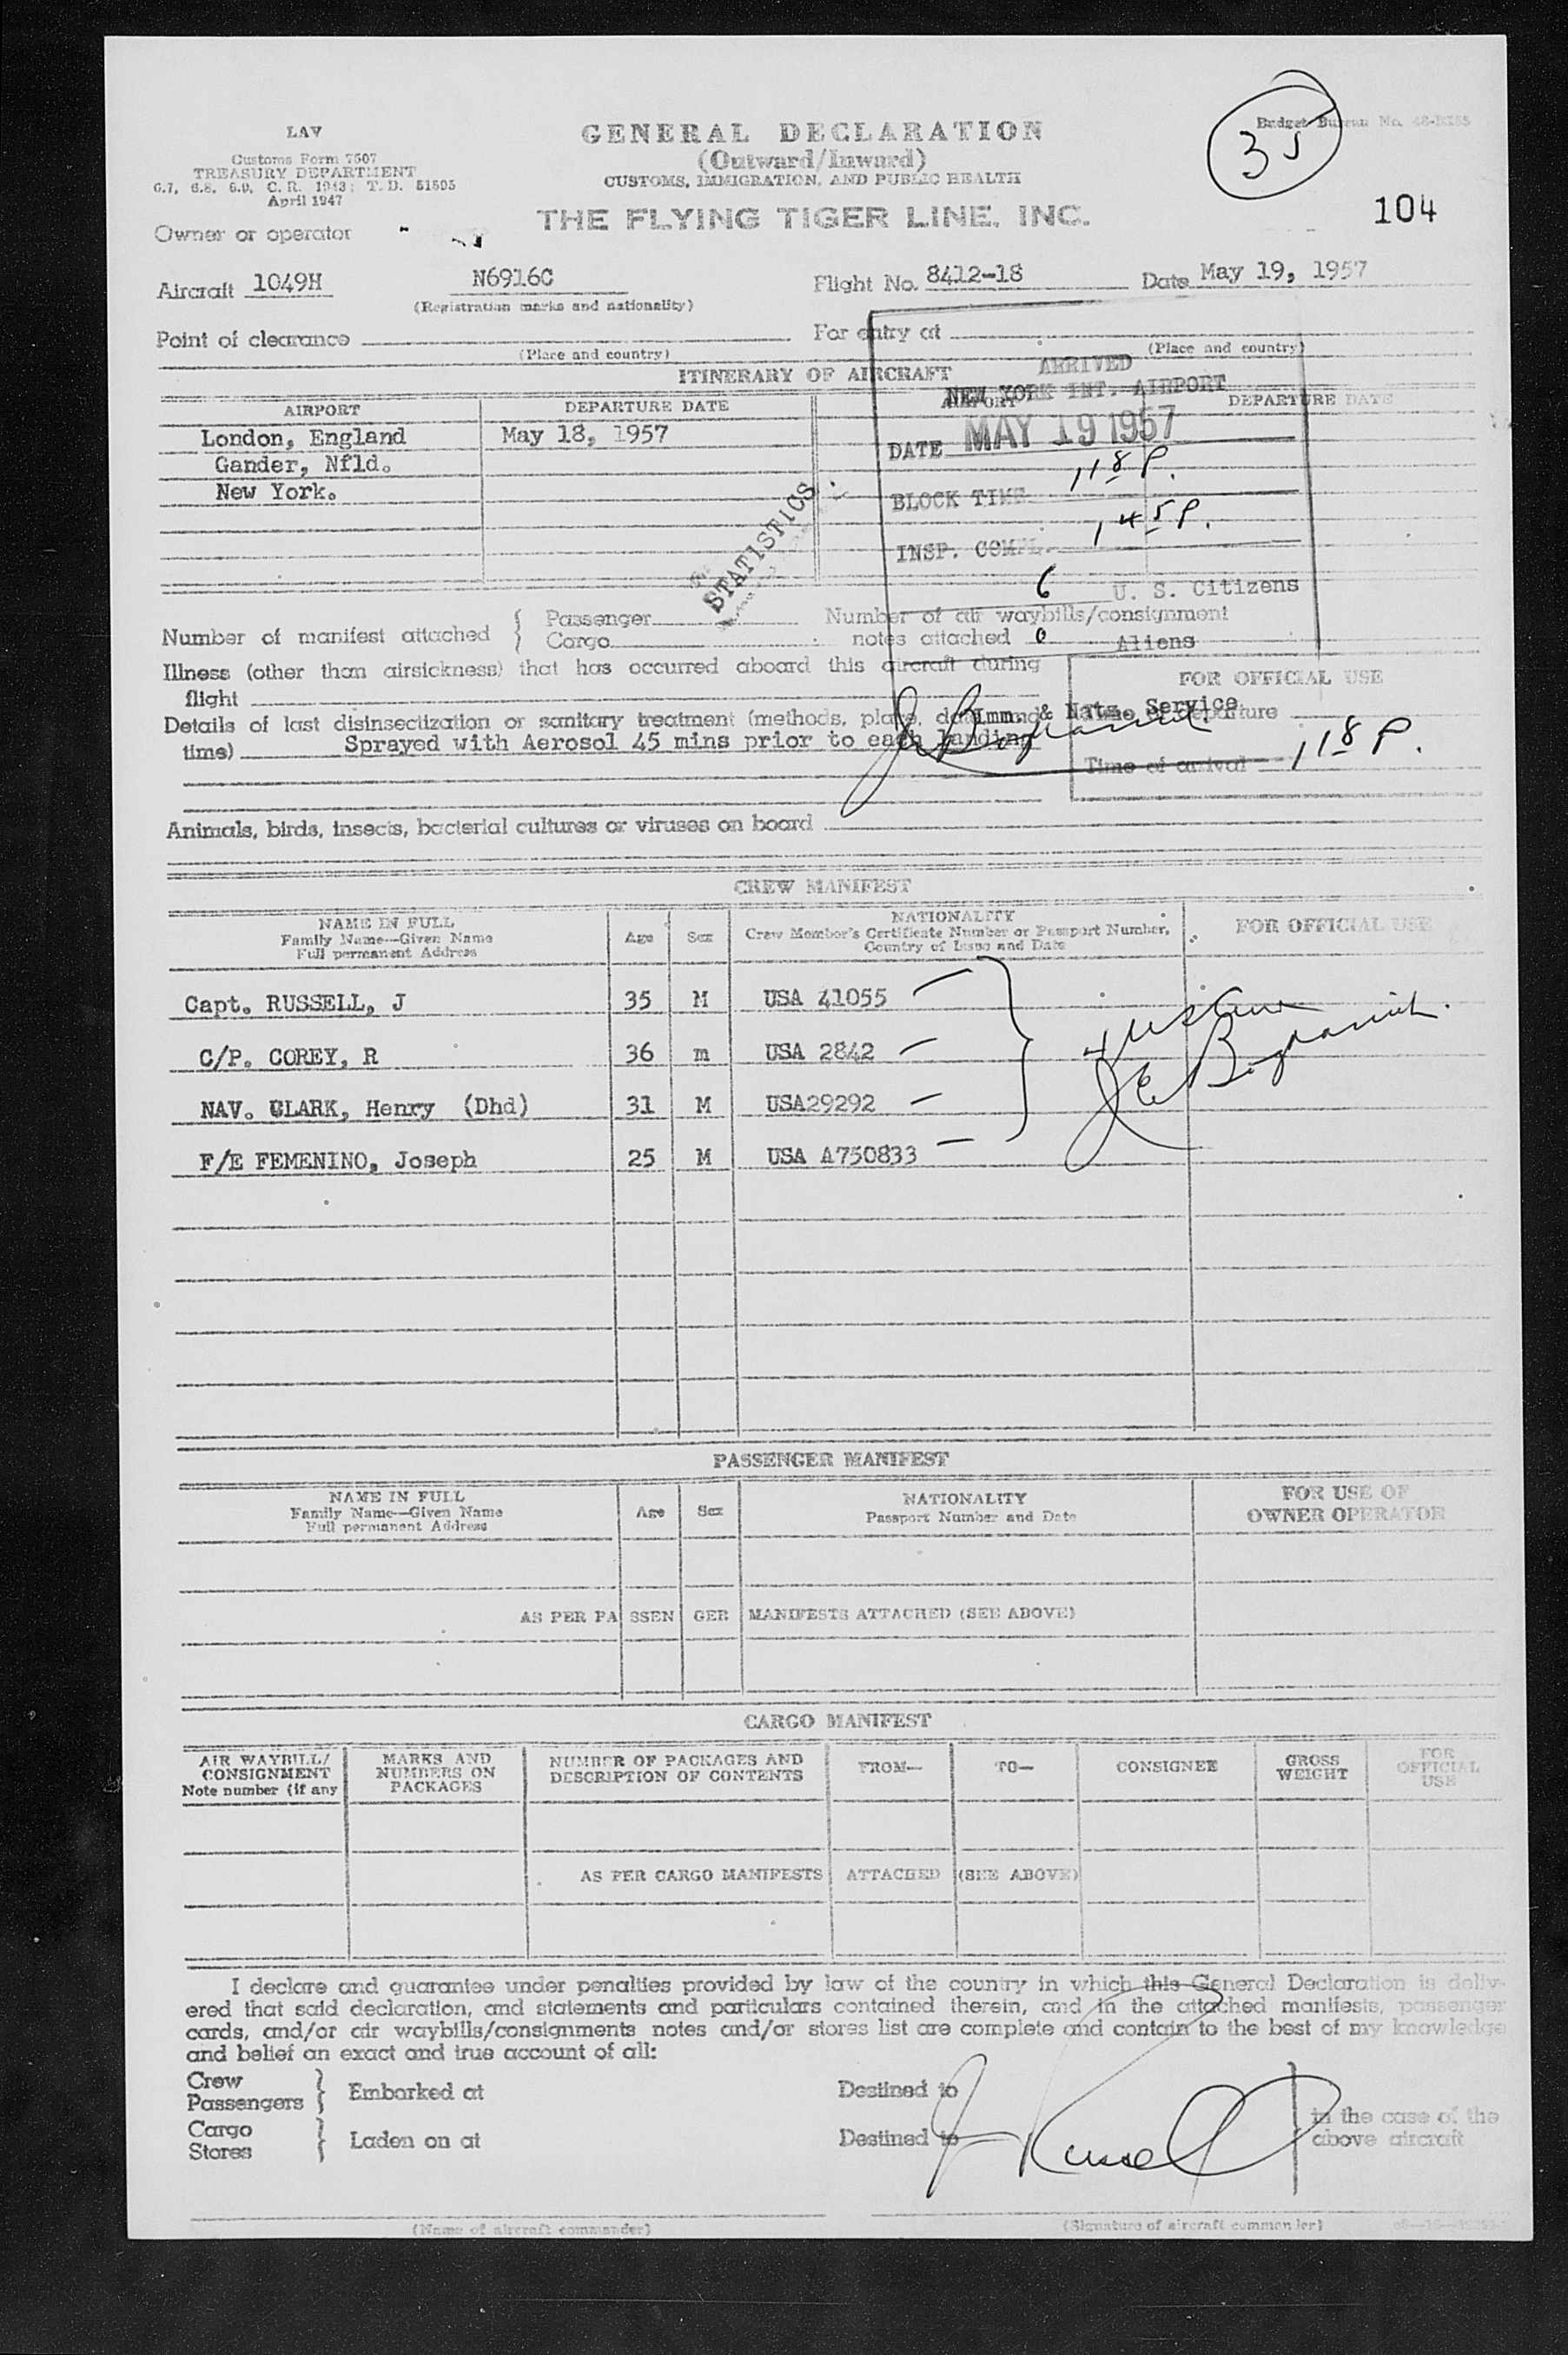 LAV
Customs Form 7507
TREASURY DEPARTMENT
6.7, 6.8, 6.9, C. R. 1943; T. D. 51595
April 1947
GENERAL DECLARATION
(Outward/Inward)
CUSTOMS, IMMIGRATION, AND PUBLIC HEALTH
THE FLYING TIGER LINE, INC.
Budget Bureau No.
35
104
Owner or operator
Aircraft 1049H N6916C Flight No. 8412-18 Date May 19, 1957
(Registration marks and nationality)
Point of clearance For entry at
(Place and country) (Place and country)
ITINERARY OF AIRCRAFT
AIRPORT DEPARTURE DATE AIRPORT DEPARTURE DATE
London, England May 18, 1957
Gander, Nfld.
New York.
ARRIVED
NEW YORK INT. AIRPORT
DATE MAY 19 1957
BLOCK TIME 118 P.
INSP. COMPL. 145 P.
6 U. S. Citizens
0 Aliens
Imm. & Natz. Service
STATISTICS
Number of manifest attached { Passenger
Cargo
Number of air waybills/consignment
notes attached
Illness (other than airsickness) that has occurred aboard this aircraft during
flight
Details of last disinsectization or sanitary treatment (methods, place, date, and
time) Sprayed with Aerosol 45 mins prior to each landing
FOR OFFICIAL USE
Time of departure
Time of arrival 118 P.
Animals, birds, insects, bacterial cultures or viruses on board
CREW MANIFEST
NAME IN FULL
Family Name—Given Name
Full permanent Address
Age Sex
NATIONALITY
Crew Member's Certificate Number or Passport Number,
Country of Issue and Date
FOR OFFICIAL USE
Capt. RUSSELL, J 35 M USA 41055
C/P. COREY, R 36 m USA 2842
NAV. CLARK, Henry (Dhd) 31 M USA29292
F/E FEMENINO, Joseph 25 M USA A750833
PASSENGER MANIFEST
NAME IN FULL
Family Name—Given Name
Full permanent Address
Age Sex
NATIONALITY
Passport Number and Date
FOR USE OF
OWNER OPERATOR
AS PER PASSENGER MANIFESTS ATTACHED (SEE ABOVE)
CARGO MANIFEST
AIR WAYBILL/
CONSIGNMENT
Note number (if any
MARKS AND
NUMBERS ON
PACKAGES
NUMBER OF PACKAGES AND
DESCRIPTION OF CONTENTS
FROM— TO— CONSIGNEE
GROSS
WEIGHT
FOR
OFFICIAL
USE
AS PER CARGO MANIFESTS ATTACHED (SEE ABOVE)
I declare and guarantee under penalties provided by law of the country in which this General Declaration is deliv-
ered that said declaration, and statements and particulars contained therein, and in the attached manifests, passenger
cards, and/or air waybills/consignments notes and/or stores list are complete and contain to the best of my knowledge
and belief an exact and true account of all:
Crew
Passengers } Embarked at Destined to
Cargo
Stores } Laden on at Destined to
in the case of the
above aircraft
J Russell
(Name of aircraft commander) (Signature of aircraft commander)